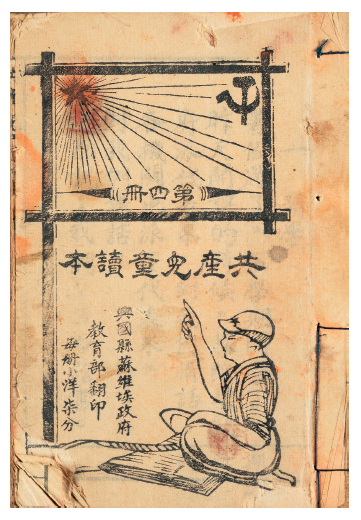 第四册
共產兒童讀本
興國縣蘇維埃政府
教育部翻印
每册小洋柒分